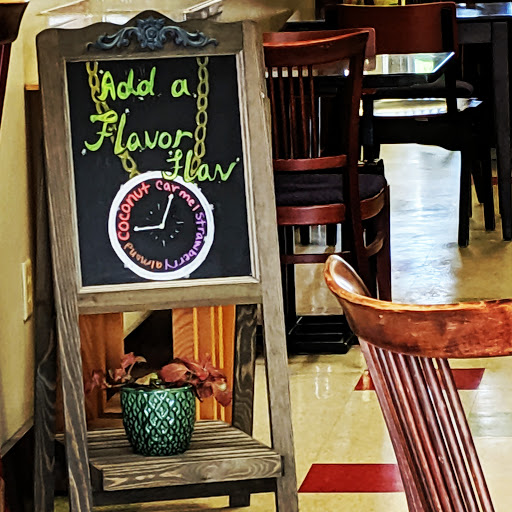 Add a
Flavor
Flav
coconut carmel strawberry almond